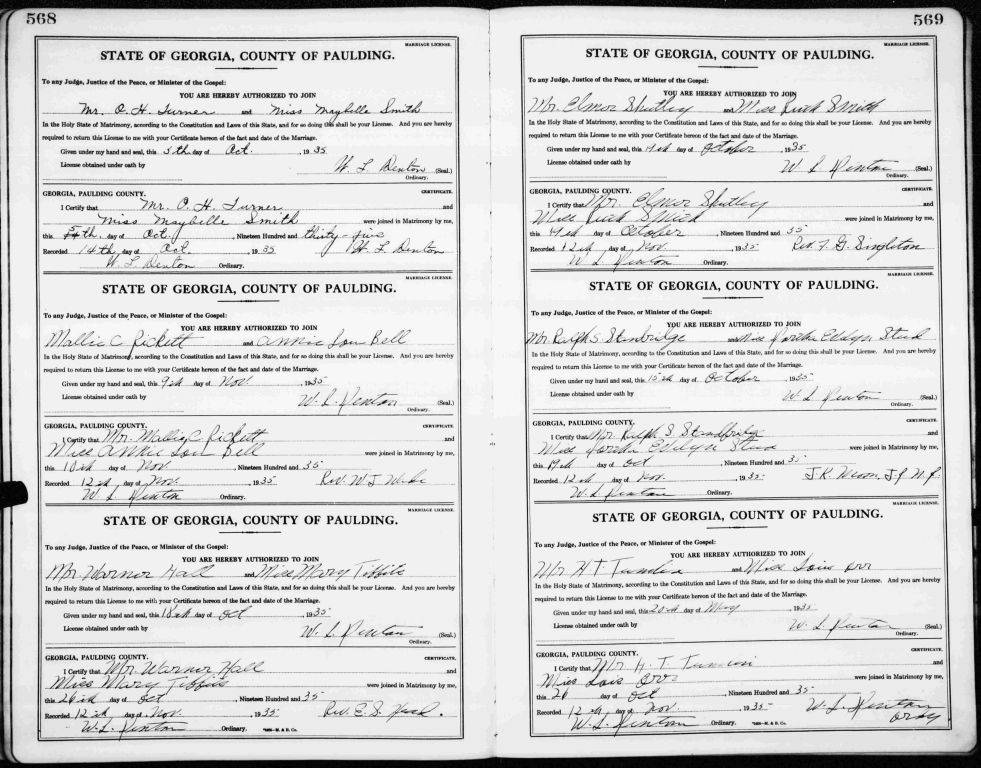 568
MARRIAGE LICENSE.
STATE OF GEORGIA, COUNTY OF PAULDING.
To any Judge, Justice of the Peace, or Minister of the Gospel:
YOU ARE HEREBY AUTHORIZED TO JOIN
Mr. O. H. Turner and Miss Maybelle Smith
In the Holy State of Matrimony, according to the Constitution and Laws of this State, and for so doing this shall be your License. And you are hereby
required to return this License to me with your Certificate hereon of the fact and date of the Marriage.
Given under my hand and seal, this 5th day of Oct. , 1935
License obtained under oath by W. L. Denton (Seal.)
Ordinary.
GEORGIA, PAULDING COUNTY. CERTIFICATE.
I Certify that Mr. O. H. Turner and
Miss Maybelle Smith were joined in Matrimony by me,
this 5th. day of Oct. , Nineteen Hundred and thirty-five
Recorded 14th day of Oct. , 1935 W. L. Denton
W. L. Denton Ordinary.
MARRIAGE LICENSE.
STATE OF GEORGIA, COUNTY OF PAULDING.
To any Judge, Justice of the Peace, or Minister of the Gospel:
YOU ARE HEREBY AUTHORIZED TO JOIN
Mallie C Pickett and Annie Lou Bell
In the Holy State of Matrimony, according to the Constitution and Laws of this State, and for so doing this shall be your License. And you are hereby
required to return this License to me with your Certificate hereon of the fact and date of the Marriage.
Given under my hand and seal, this 9th day of Nov. , 1935
License obtained under oath by W. L. Denton (Seal.)
Ordinary.
GEORGIA, PAULDING COUNTY. CERTIFICATE.
I Certify that Mr. Mallie C Pickett and
Miss Annie Lou Bell were joined in Matrimony by me,
this 10th day of Nov , Nineteen Hundred and 35
Recorded 12th day of Nov. , 1935 Rev. W J
W. L. Denton Ordinary.
MARRIAGE LICENSE.
STATE OF GEORGIA, COUNTY OF PAULDING.
To any Judge, Justice of the Peace, or Minister of the Gospel:
YOU ARE HEREBY AUTHORIZED TO JOIN
Mr. Warnor Hall and Miss Mary Tibbits
In the Holy State of Matrimony, according to the Constitution and Laws of this State, and for so doing this shall be your License. And you are hereby
required to return this License to me with your Certificate hereon of the fact and date of the Marriage.
Given under my hand and seal, this 18th day of Oct , 1935
License obtained under oath by W. L. Denton (Seal.)
Ordinary.
GEORGIA, PAULDING COUNTY. CERTIFICATE.
I Certify that Mr. Warnor Hall and
Miss Mary Tibbits were joined in Matrimony by me,
this 20th day of Oct , Nineteen Hundred and 35
Recorded 12th day of Nov. , 1935 Rev. E. S.
W. L. Denton Ordinary.
569
MARRIAGE LICENSE.
STATE OF GEORGIA, COUNTY OF PAULDING.
To any Judge, Justice of the Peace, or Minister of the Gospel:
YOU ARE HEREBY AUTHORIZED TO JOIN
Mr. Elmor Shutley and Miss Ruth Smith
In the Holy State of Matrimony, according to the Constitution and Laws of this State, and for so doing this shall be your License. And you are hereby
required to return this License to me with your Certificate hereon of the fact and date of the Marriage.
Given under my hand and seal, this 4th day of October , 1935
License obtained under oath by W. L. Denton (Seal.)
Ordinary.
GEORGIA, PAULDING COUNTY. CERTIFICATE.
I Certify that Mr. Elmor Shutley and
Miss Ruth Smith were joined in Matrimony by me,
this 4th day of October , Nineteen Hundred and 35
Recorded 12th day of Nov. , 1935 Rev. F. G. Singleton
W. L. Denton Ordinary.
MARRIAGE LICENSE.
STATE OF GEORGIA, COUNTY OF PAULDING.
To any Judge, Justice of the Peace, or Minister of the Gospel:
YOU ARE HEREBY AUTHORIZED TO JOIN
Mr Ralph S Stanbridge and Miss
In the Holy State of Matrimony, according to the Constitution and Laws of this State, and for so doing this shall be your License. And you are hereby
required to return this License to me with your Certificate hereon of the fact and date of the Marriage.
Given under my hand and seal, this 15th day of October , 1935
License obtained under oath by W. L. Denton (Seal.)
Ordinary.
GEORGIA, PAULDING COUNTY. CERTIFICATE.
I Certify that Mr Ralph S Standbridge and
Miss were joined in Matrimony by me,
this 19th day of Oct , Nineteen Hundred and 35
Recorded 12th day of Nov. , 1935 J. R.
W. L. Denton Ordinary.
MARRIAGE LICENSE.
STATE OF GEORGIA, COUNTY OF PAULDING.
To any Judge, Justice of the Peace, or Minister of the Gospel:
YOU ARE HEREBY AUTHORIZED TO JOIN
Mr. H T Tumlin and Miss Lois Orr
In the Holy State of Matrimony, according to the Constitution and Laws of this State, and for so doing this shall be your License. And you are hereby
required to return this License to me with your Certificate hereon of the fact and date of the Marriage.
Given under my hand and seal, this 20th day of May , 1935
License obtained under oath by W. L. Denton (Seal.)
Ordinary.
GEORGIA, PAULDING COUNTY. CERTIFICATE.
I Certify that Mr. H. T. Tumlin and
Miss Lois Orr were joined in Matrimony by me,
this 20 day of Oct , Nineteen Hundred and 35
Recorded 12th day of Nov. , 1935 W. L. Denton
W. L. Denton Ordinary. Ordy